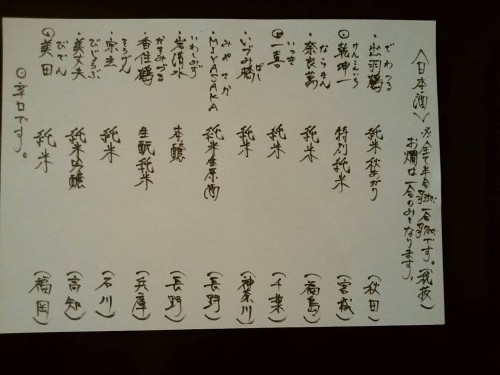 〈日本酒〉 ※全て半合 一合 です。(税抜)
お燗は一合のみとなります。
でわつる
・出羽鶴 純米 秋あがり (秋田)
けんこんいち
◎乾坤一 特別純米 (宮城)
ならまん
・奈良萬 純米 (福島)
いっき
◎一喜 純米 (千葉)
ばし
・いづみ橋 純米 (神奈川)
みやさか
・MIYASAKA 純米生原酒 (長野)
いわしみず
・岩清水 本醸 (長野)
かすみづる
・香住鶴 生酛純米 (兵庫)
そうげん
・宗玄 純米 (石川)
びじょうぶ
・美丈夫 純米吟醸 (高知)
びでん
◎美田 純米 (福岡)
◎辛口です。